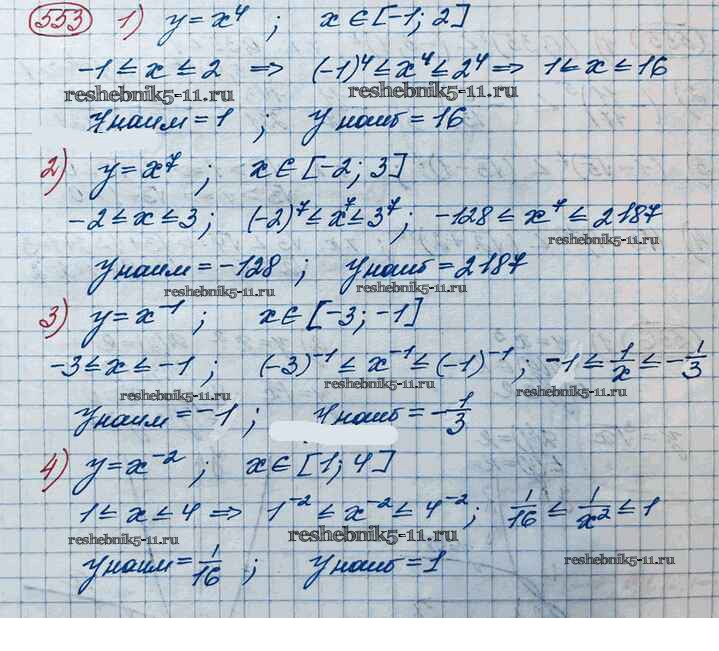 553 1) y = x⁴ ; x ∈ [-1; 2]
-1 ≤ x ≤ 2 ⇒ (-1)⁴ ≤ x⁴ ≤ 2⁴ ⇒ 1 ≤ x ≤ 16
reshebnik5-11.ru reshebnik5-11.ru
Yнаим = 1 ; Yнаиб = 16
2) y = x⁷ ; x ∈ [-2; 3]
-2 ≤ x ≤ 3; (-2)⁷ ≤ x⁷ ≤ 3⁷ ; -128 ≤ x⁷ ≤ 2187
reshebnik5-11.ru
Yнаим = -128 ; Yнаиб = 2187
reshebnik5-11.ru reshebnik5-11.ru
3) y = x⁻¹ ; x ∈ [-3; -1]
-3 ≤ x ≤ -1 ; (-3)⁻¹ ≤ x⁻¹ ≤ (-1)⁻¹ ; -1 ≤ 1/x ≤ -1/3
reshebnik5-11.ru reshebnik5-11.ru reshebnik5-11.ru
Yнаим = -1 ; Yнаиб = -1/3
4) y = x⁻² ; x ∈ [1; 4]
1 ≤ x ≤ 4 ⇒ 1⁻² ≤ x⁻² ≤ 4⁻² ; 1/16 ≤ 1/x² ≤ 1
reshebnik5-11.ru reshebnik5-11.ru reshebnik5-11.ru
Yнаим = 1/16 ; Yнаиб = 1